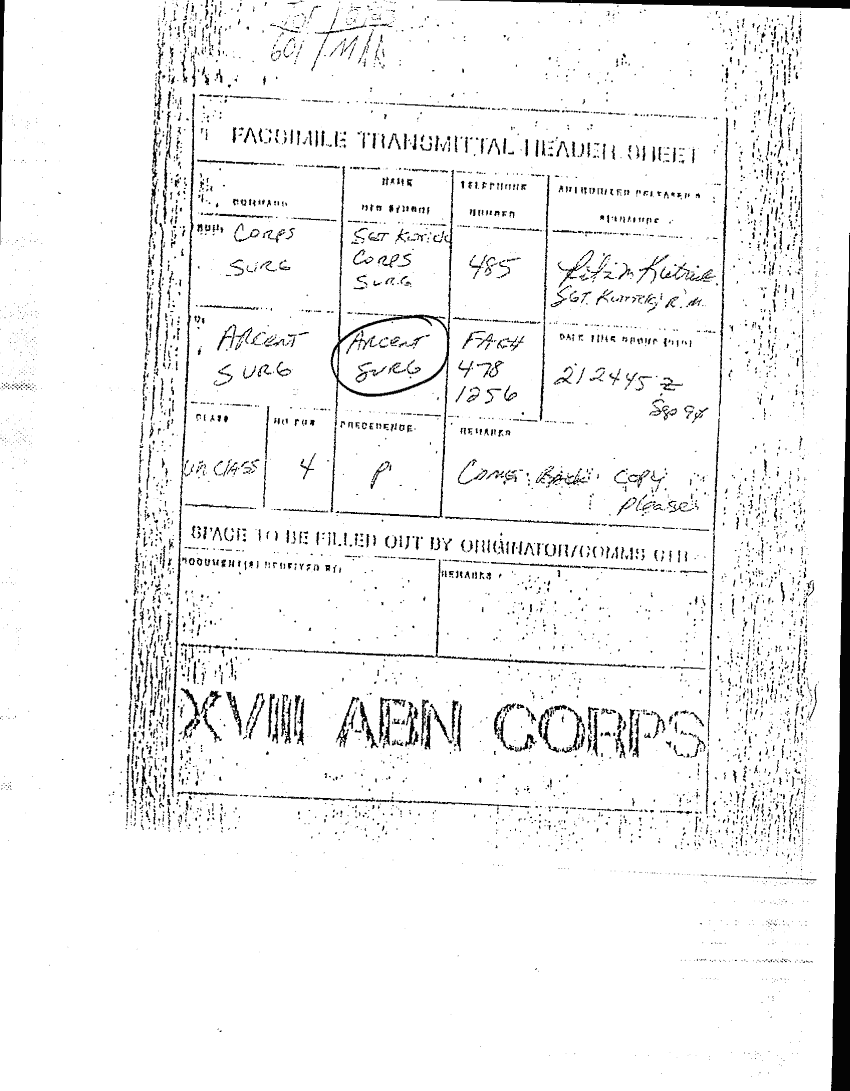 601 / MAR
FACSIMILE TRANSMITTAL HEADER SHEET
COMMAND
NAME
OFF SYMBOL
TELEPHONE
NUMBER
AUTHORIZED RELEASER'S
SIGNATURE
CORPS
SURG
SGT
CORPS
SURG
485
SGT. R. M.
TO:
ARCENT
SURG
ARCENT
SURG
478
1256
DATE TIME GROUP
212445 Z
Sep 90
CLASS
NO PGS
PRECEDENCE
REMARKS
UNCLASS
4
P
Back copy
please
SPACE TO BE FILLED OUT BY ORIGINATOR/COMMS CTR
DOCUMENT(S) RECEIVED BY:
REMARKS
XVIII ABN CORPS